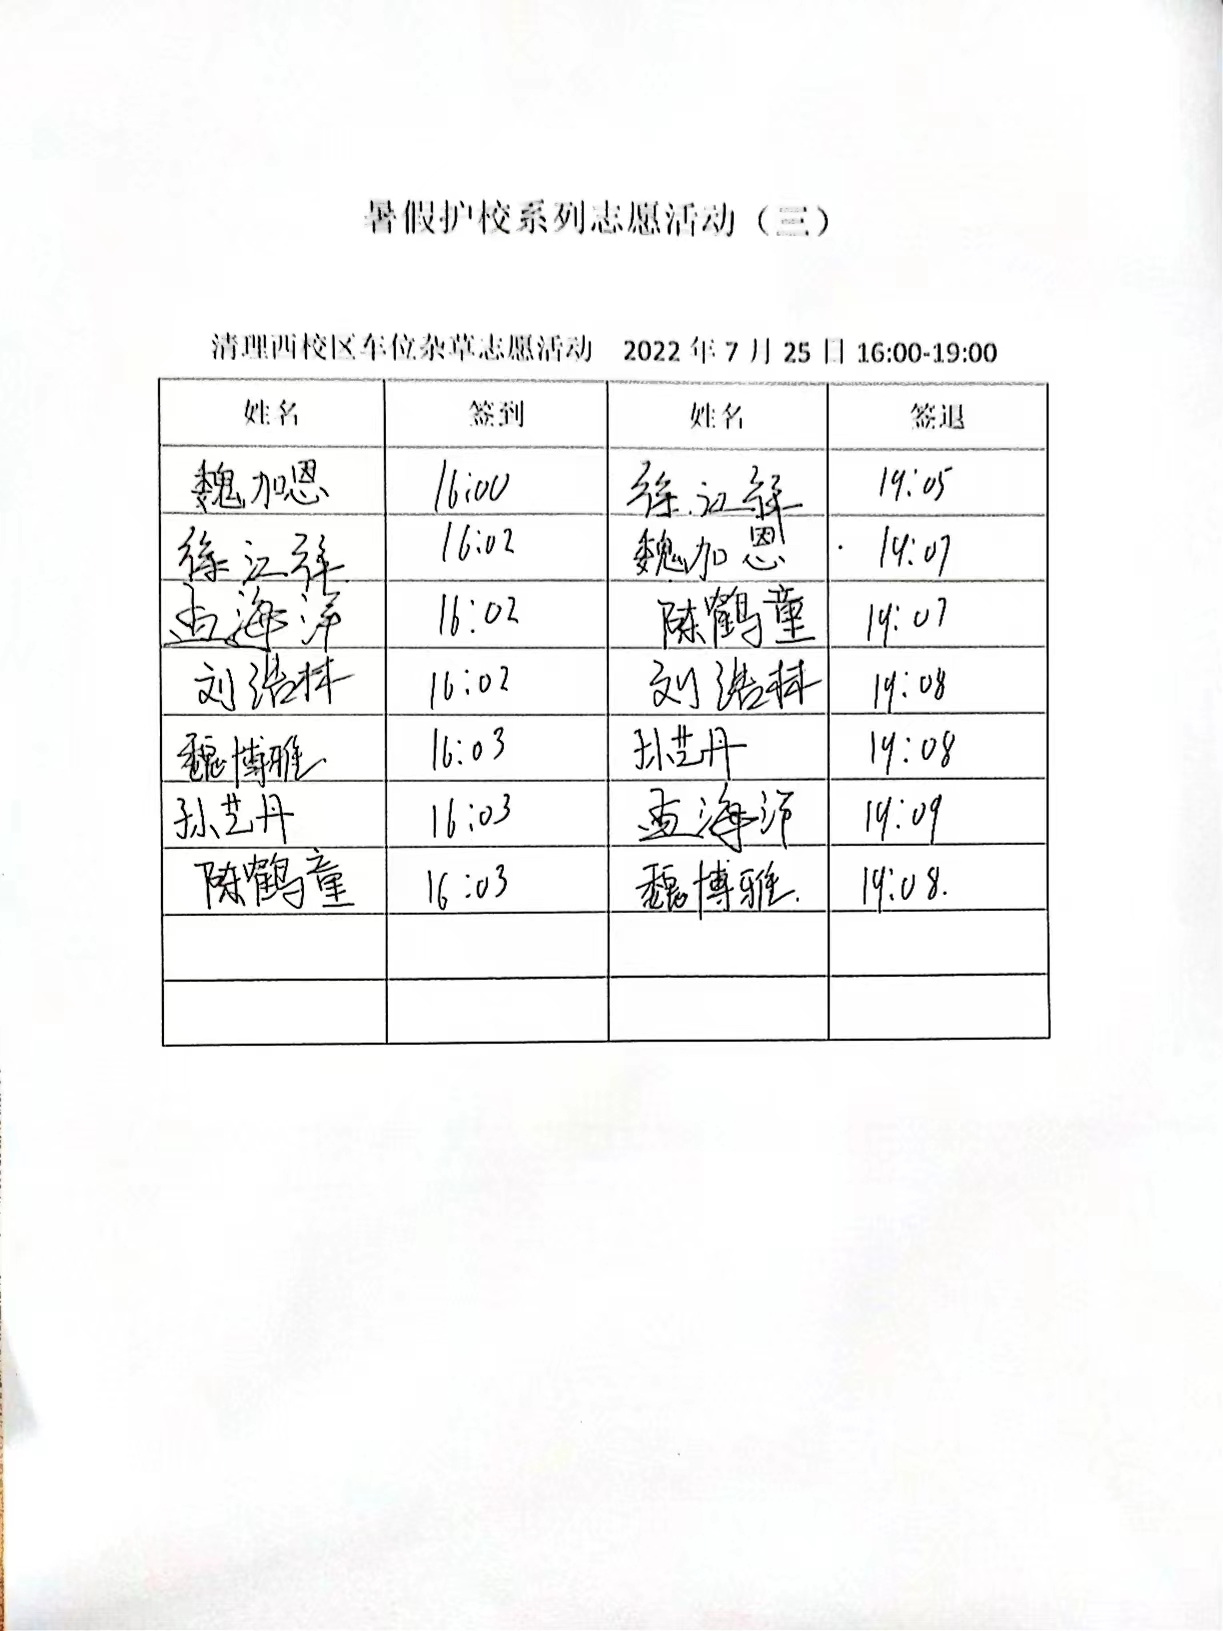 暑假护校系列志愿活动（三）
清理西校区车位杂草志愿活动 2022 年 7 月 25 日 16:00-19:00
姓名 签到 姓名 签退
魏加恩 16:00 徐江祥 19:05
徐江祥 16:02 魏加恩 19:07
孟海洋 16:02 陈鹤童 19:07
刘浩林 16:02 刘浩林 19:08
魏博雅 16:03 孙艺丹 19:08
孙艺丹 16:03 孟海洋 19:09
陈鹤童 16:03 魏博雅. 19:08.